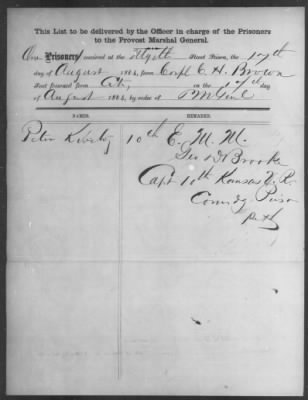 This List to be delivered by the Officer in charge of the Prisoners
to the Provost Marshal General.
One Prisoner received at the Myrtle Street Prison, the 17th
day of August 1864, from Corpl C. H. Brown
And forwarded from City, on the 17th day
of August 1864, by order of P M Genl
NAMES. REMARKS.
Peter 10th E. M. M.
Geo D Brooke
Capt 10th Kansas V. I.
Comdg Prison